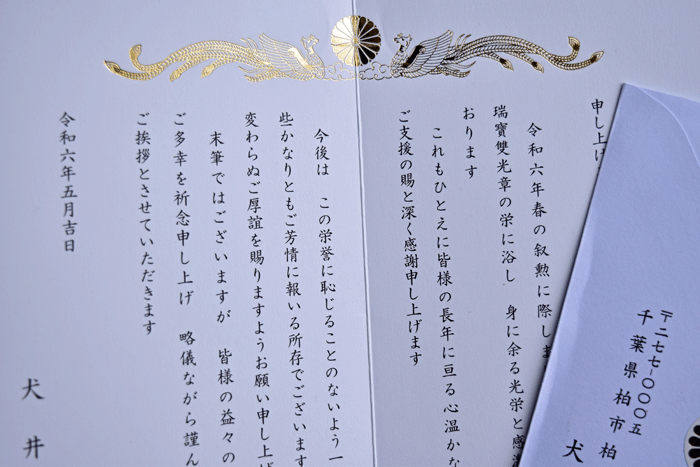 申し上げ
令和六年春の叙勲に際しま
瑞寶雙光章の栄に浴し 身に余る光栄と感激
おります
これもひとえに皆様の長年に亘る心温かな
ご支援の賜と深く感謝申し上げます
今後は この栄誉に恥じることのないよう一
些かなりともご芳情に報いる所存でございます
変わらぬご厚誼を賜りますようお願い申し上げ
末筆ではございますが 皆様の益々の
ご多幸を祈念申し上げ 略儀ながら謹ん
ご挨拶とさせていただきます
令和六年五月吉日
犬井
〒二七七-〇〇〇五
千葉県柏市柏
犬